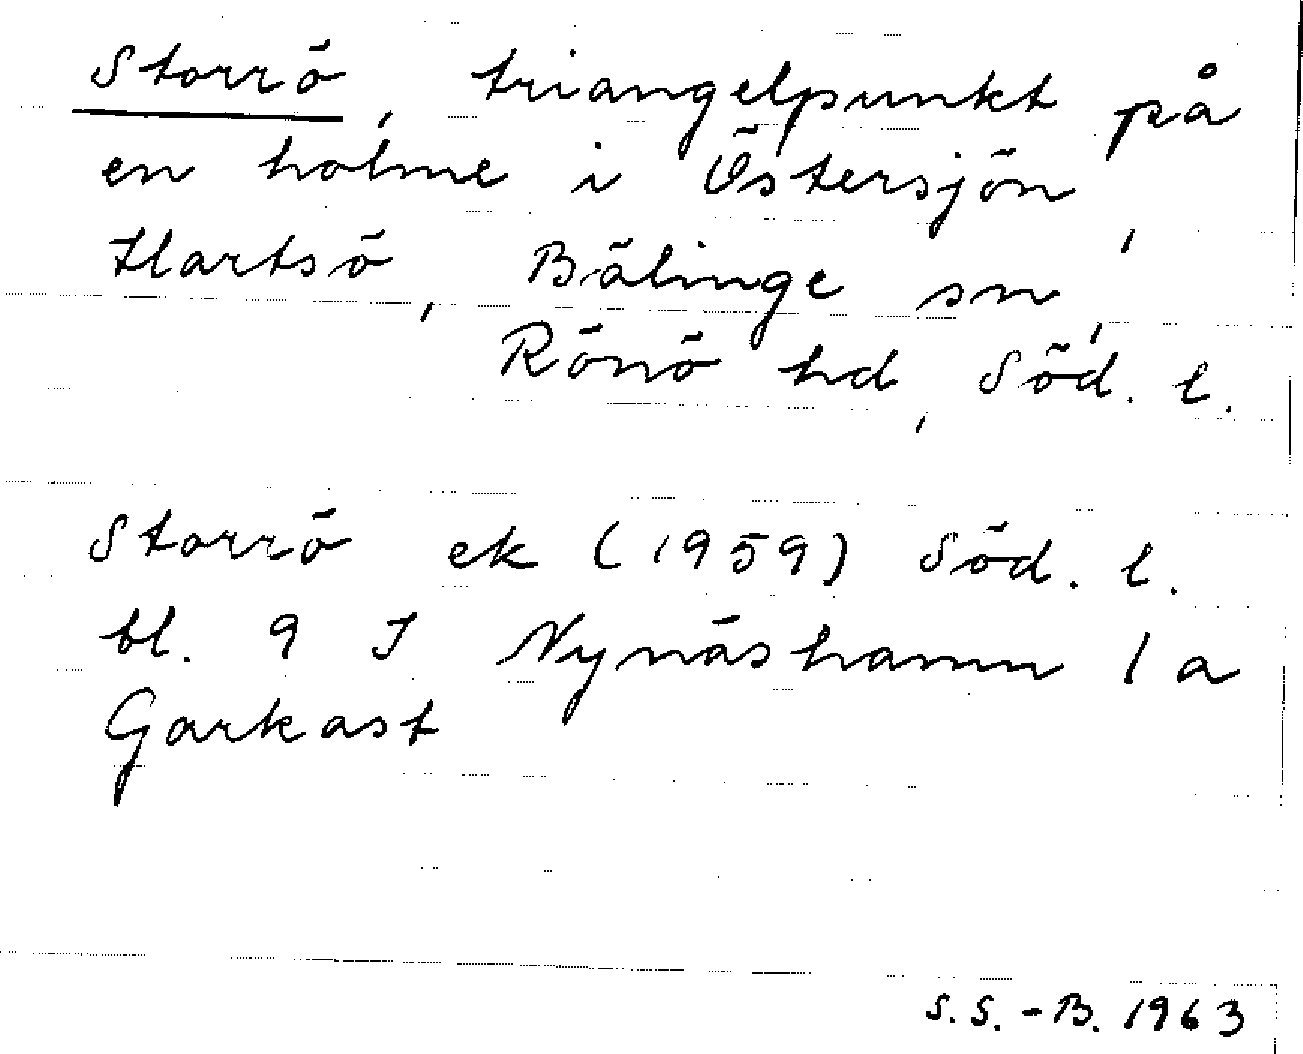 Storrö, triangelpunkt på
en holme i Östersjön,
Hartsö, Bälinge sn,
Rönö hd, Söd. l.
Storrö ek (1959) Söd. l.
bl. 9 I Nynäshamn 1 a
Garkast
S.S.-B. 1963